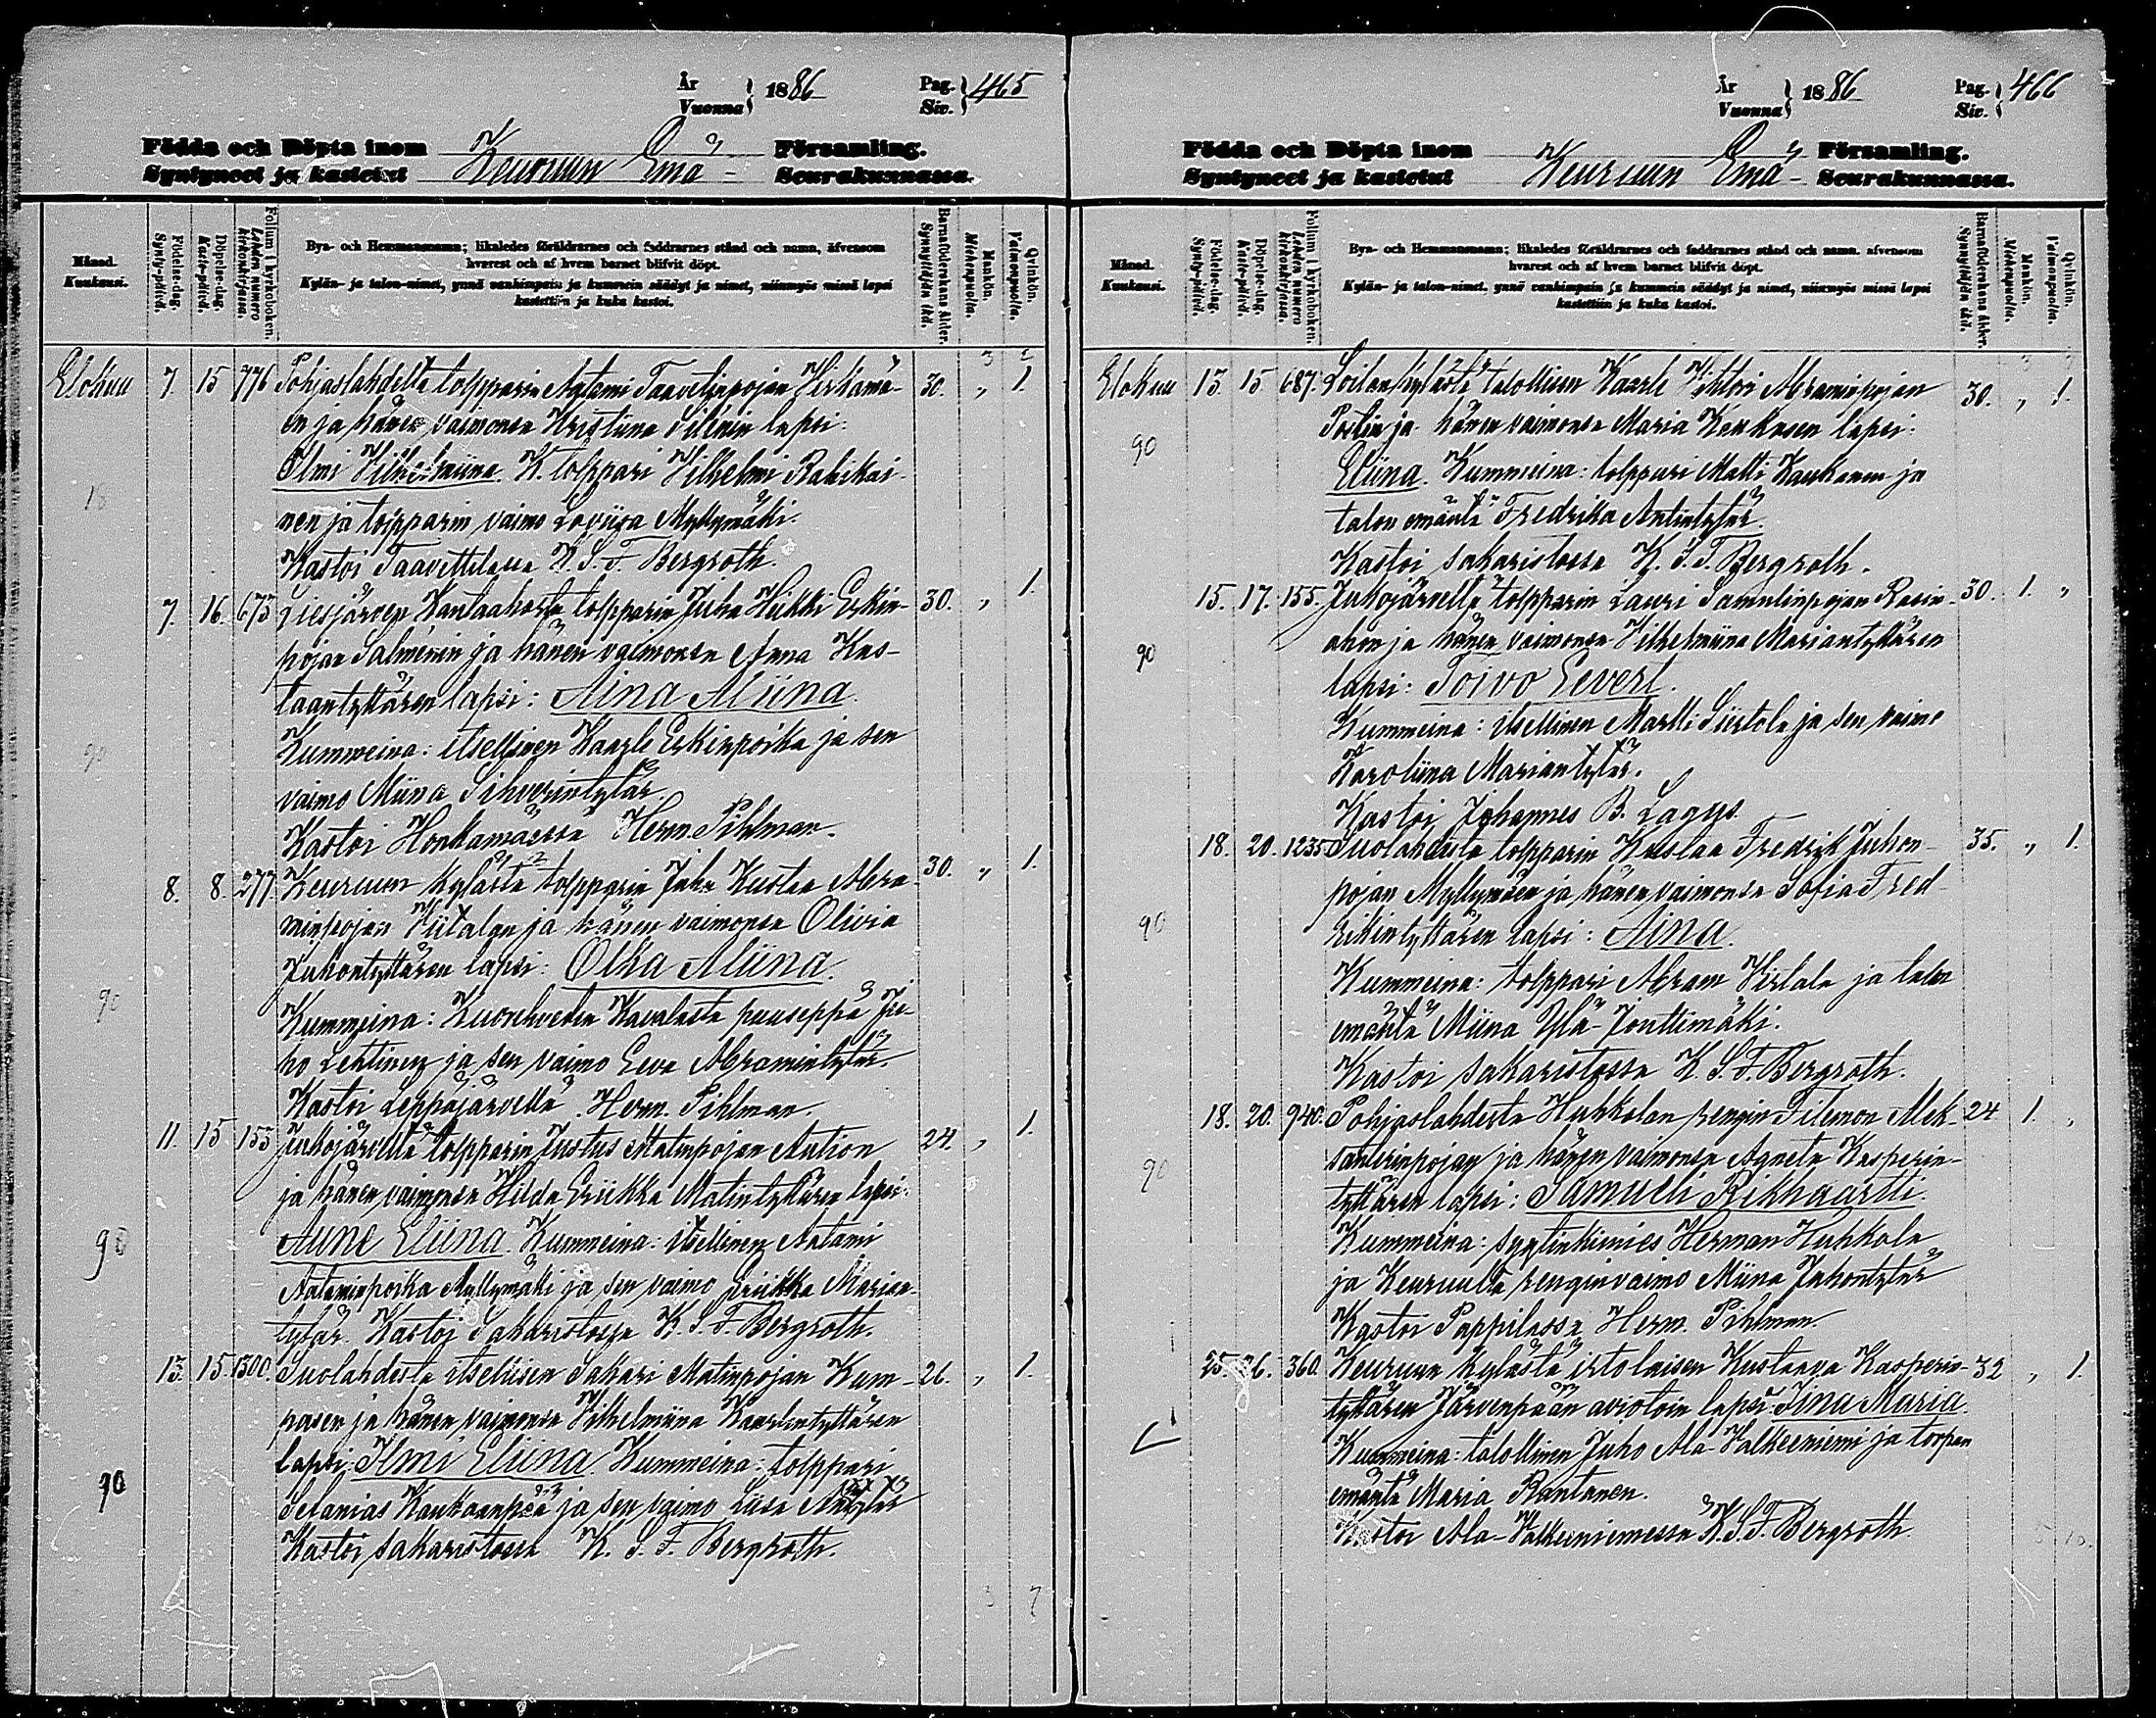 År
Vuonna } 1886 Pag.
Siv. } 465
Födda och Döpta inom
Syntyneet ja kastetut Keuruun Emä- Församling.
Seurakunnassa.
Månad.
Kuukausi.
Födelse-dag.
Synty-päivä.
Döpelse-dag.
Kaste-päivä.
Folium i kyrkoboken.
Lehden numero kirkonkirjassa.
Bya- och Hemmansnamn; likaledes föräldrarnes och faddrarnes stånd och namn, äfvensom
hvarest och af hvem barnet blifvit döpt.
Kylän- ja talon-nimet, ynnä vanhimpain ja kummein säädyt ja nimet, niinmyös missä lapsi
kastettiin ja kuka kastoi.
Barnaföderskans ålder.
Synnyttäjän ikä.
Mankön.
Miehenpuolia.
Qvinkön.
Vaimonpuolia.
3 2
Elokuu 7. 15 776 Pohjaslahdelta torpparin Aatami Taavetinpojan 30. „ 1.
en ja hänen vaimonsa Kristiina lapsi:
Olmi Vilhelmiina. K. torppari Vilhelmi
18
nen ja torpparin vaimo Loviisa Myllymäki.
Kastoi Taavettilassa K. S. F. Bergroth.
7. 16. 673 Liesjärven torpparin Juha Heikki Erkin- 30. „ 1.
pojan Salmenin ja hänen vaimonsa Anna Kus-
taantyttären lapsi: Aina Miina.
Kummeina: itsellinen Kaarle Erkinpoika ja sen
90
vaimo Miina Sihverintytär
Kastoi Honkamäessä Herm. Pihlman.
8. 8. 277. Keuruun kylästä torpparin Juha Kustaa Abra- 30. „ 1.
minpojan Viitalan ja hänen vaimonsa Olivia
Juhontyttären lapsi: Olka Miina.
90
Kummeina: Kuoreheden puuseppä Ju-
ho Lehtinen ja sen vaimo Eeva Abramintytär.
Kastoi Leppäjärvellä. Herm. Pihlman.
11. 15 153 Jukojärveltä torpparin Justus Matinpojan Aution 24. „ 1.
ja hänen vaimonsa Hilda Eriikka Matintyttären lapsi:
90
Aune Eliina. Kummeina: itsellinen Aatami
Aataminpoika Myllymäki ja sen vaimo Eriikka Marian-
tytär. Kastoi Sakaristossa K. S. F. Bergroth.
13. 15. 1300. Suolahdesta itsellisen Sakari Matinpojan Kum- 26. „ 1.
pasen ja hänen vaimonsa Vilhelmiina Kaarlentyttären
lapsi: Ilmi Eliina. Kummeina: torppari
90
Sefanias Kaukaanpää ja sen vaimo Liisa Antintytär
Kastoi sakaristossa K. S. F. Bergroth.
3 7
År
Vuonna } 1886 Pag.
Siv. } 466
Födda och Döpta inom
Syntyneet ja kastetut Keuruun Emä- Församling.
Seurakunnassa.
Månad.
Kuukausi.
Födelse-dag.
Synty-päivä.
Döpelse-dag.
Kaste-päivä.
Folium i kyrkoboken.
Lehden numero kirkonkirjassa.
Bya- och Hemmansnamn; likaledes föräldrarnes och faddrarnes stånd och namn, äfvensom
hvarest och af hvem barnet blifvit döpt.
Kylän- ja talon-nimet, ynnä vanhimpain ja kummein säädyt ja nimet, niinmyös missä lapsi
kastettiin ja kuka kastoi.
Barnaföderskans ålder.
Synnyttäjän ikä.
Mankön.
Miehenpuolia.
Qvinkön.
Vaimonpuolia.
Elokuu 13. 15 687. Loilankylästä talollisen Kaarle Viktori Abraminpojan 30. „ 1.
90
ja hänen vaimonsa Maria Kaukasen lapsi:
Eliina. Kummeina: torppari Matti Kaukanen ja
talon emäntä Fredrika Antintytär.
Kastoi sakaristossa K. S. F. Bergroth.
15. 17. 155. Jukojärveltä torpparin Lauri Samulinpojan Rasin- 30. 1. „
90
ahon ja hänen vaimonsa Vilhelmiina Mariantyttären
lapsi: Toivo Eevert.
Kummeina: itsellinen Martti Siirtola ja sen vaimo
Karoliina Mariantytär.
Kastoi Johannes B. Lagus.
18. 20. 1235 Suolahdesta torpparin Kustaa Fredrik Juhon- 35. „ 1.
pojan Myllymäen ja hänen vaimonsa Sofia Fred-
90
rikintyttären lapsi: Aina.
Kummeina: torppari Abram Virtala ja talon
emäntä Miina Ylä-Jouttimäki.
Kastoi sakaristossa K. S. F. Bergroth.
18. 20. 940. Pohjaslahdesta Huhkolan rengin Filemon Alek- 24 1. „
90
santerinpojan ja hänen vaimonsa Agneta Kasperin-
tyttären lapsi: Samueli Rikhaartti.
Kummeina: syytinkimies Herman Huhkola
ja Keuruulta renginvaimo Miina Juhontytär
Kastoi Pappilassa Herm. Pihlman.
25. 26. 360. Keuruun kylästä irtolaisen Kustaava Kasperin- 32 „ 1.
tyttären Järvenpään aviotoin lapsi Iina Maria.
Kummeina: talollinen Juho Ala-Valkeeniemi ja torpan
emäntä Maria Rantanen.
Kastoi Ala-Valkeeniemessä K. S. F. Bergroth.
3 10.